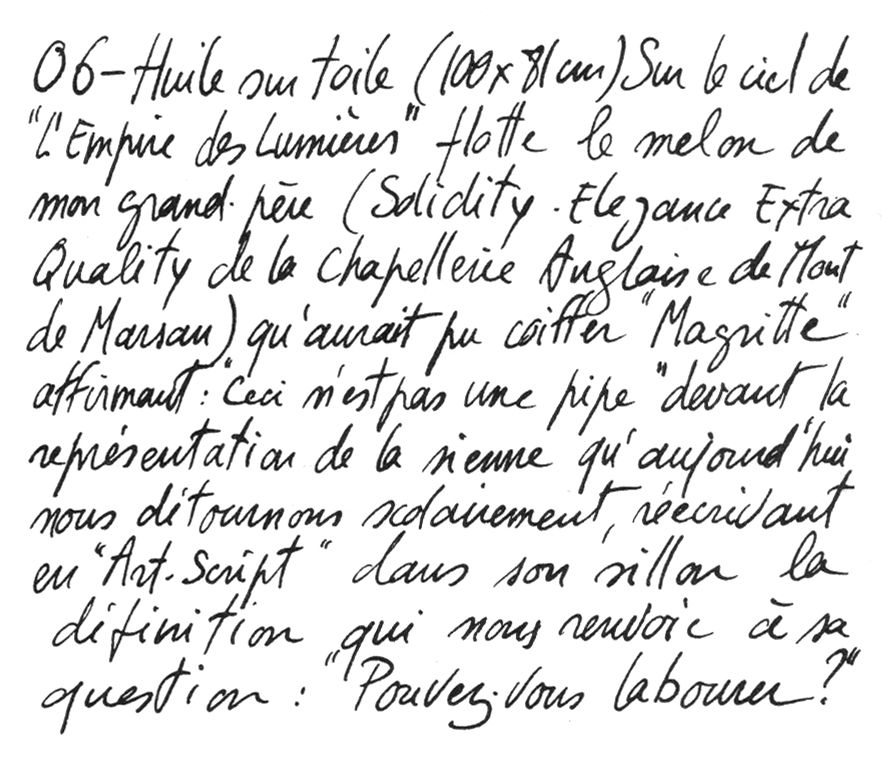 06-Huile sur toile (100x81cm) Sur le ciel de
"L'Empire des Lumières" flotte le melon de
mon grand-père (Solidity. Elegance Extra
Quality de la Chapellerie Anglaise de Mont
de Marsan) qu'aurait pu coiffer "Magritte"
affirmant: "Ceci n'est pas une pipe" devant la
représentation de la sienne qu'aujourd'hui
nous détournons scolairement, réécrivant
en "Art-Script" dans son sillon la
définition qui nous renvoie à sa
question: "Pouvez-vous labourer?"